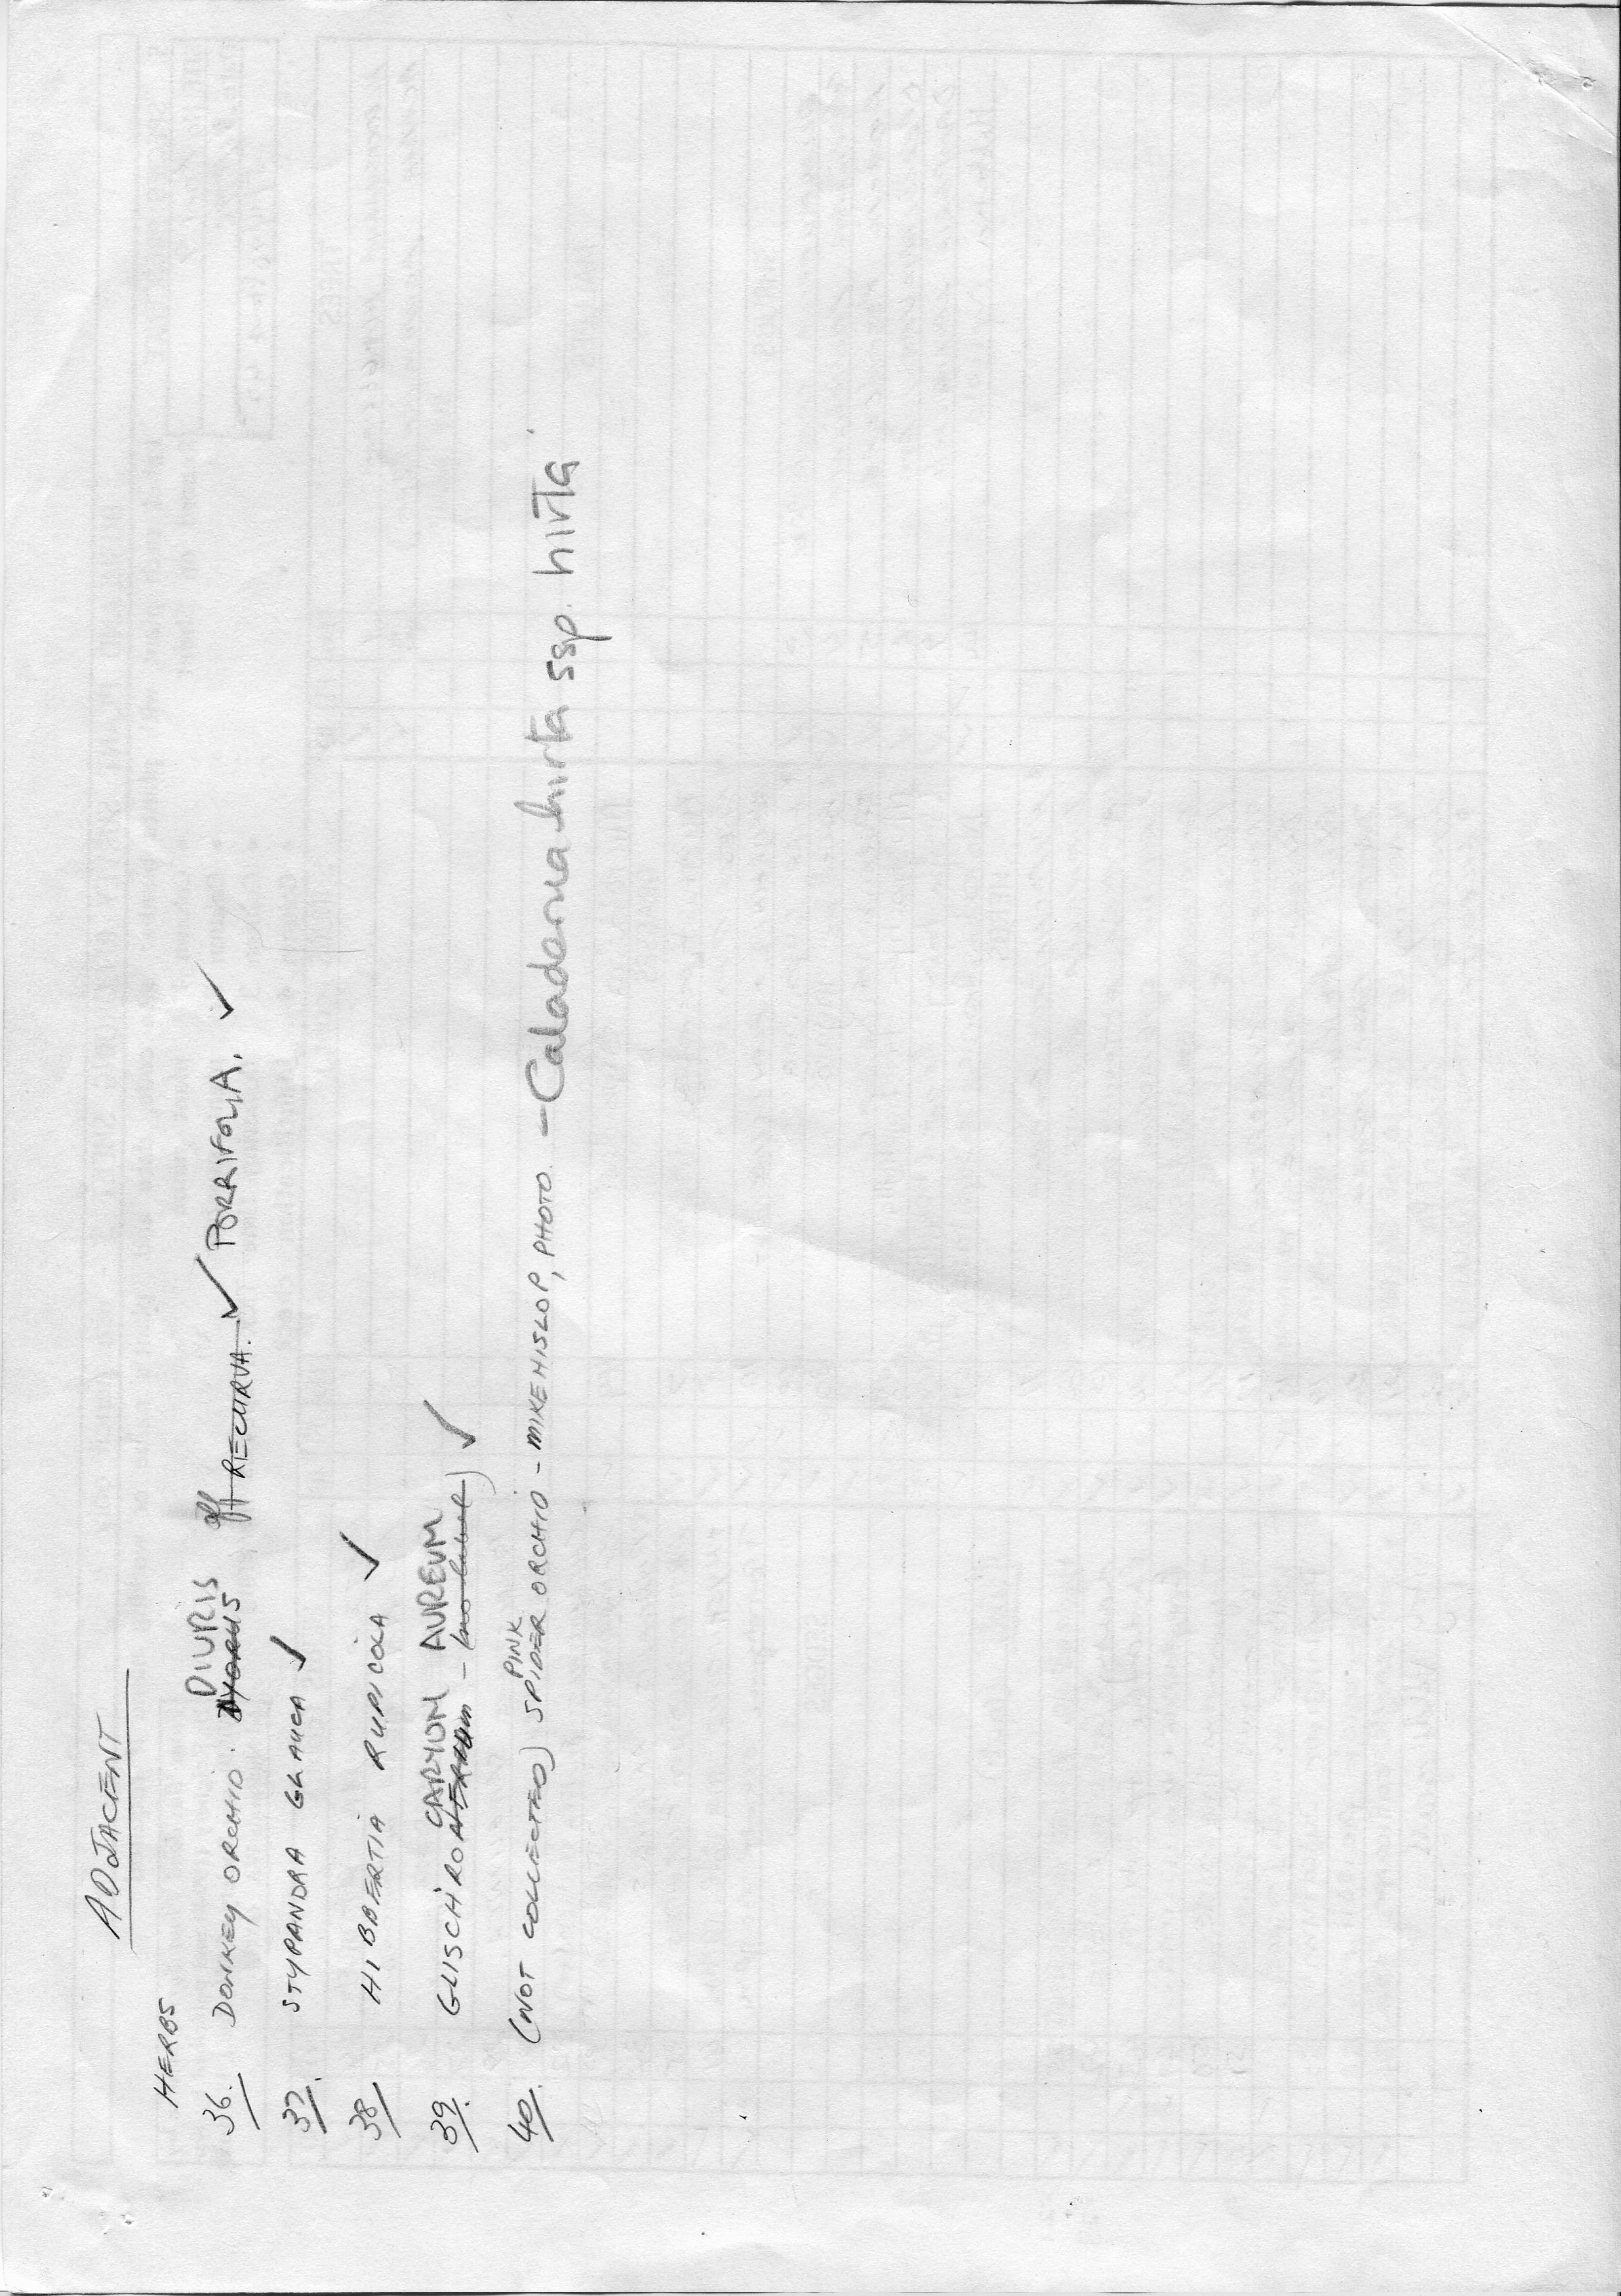 ADJACENT
HERBS
36. DONKEY ORCHID. DIURIS aff RECURVA. ✓ PORRIFOLIA. ✓
37. STYPANDRA GLAUCA ✓
38 HIBBERTIA RUPICOLA ✓
39. GLISCHROCARYON AUREUM ✓
40. (NOT COLLECTED) PINK SPIDER ORCHID - MIKE HISLOP, PHOTO. - Caladenia hirta ssp. hirta